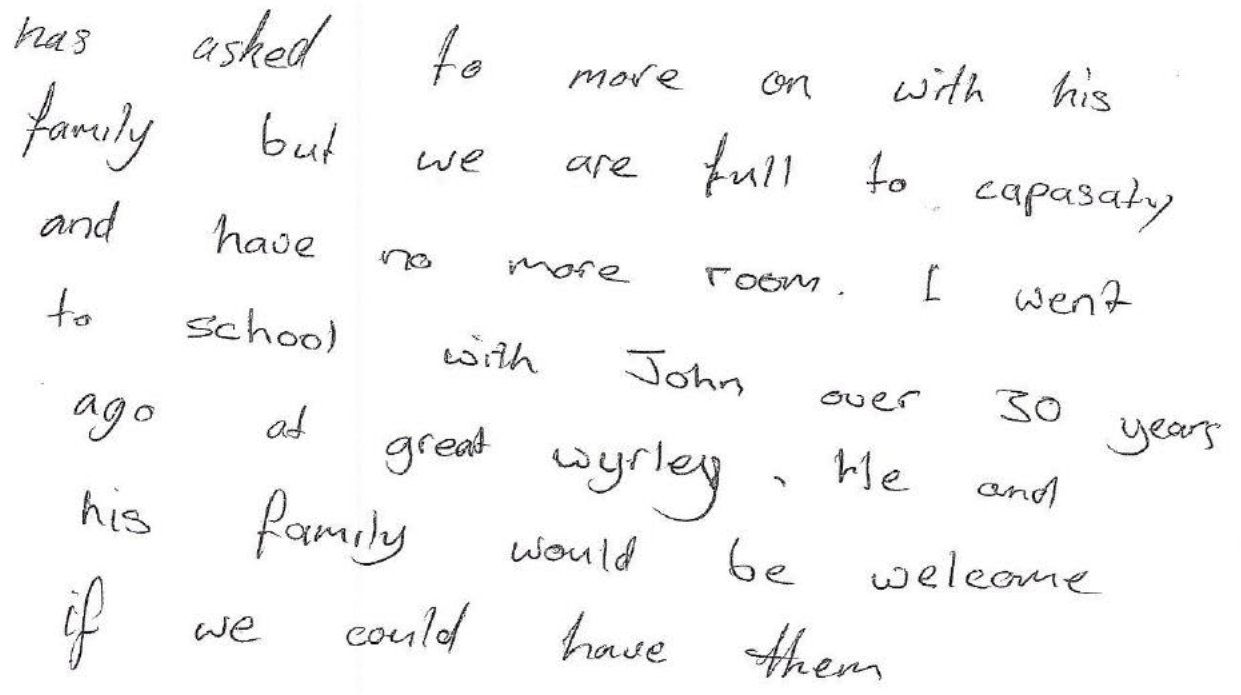 has asked to more on with his
family but we are full to capasaty
and have no more room. I went
to school with John over 30 years
ago at great wyrley. He and
his family would be welcome
if we could have them